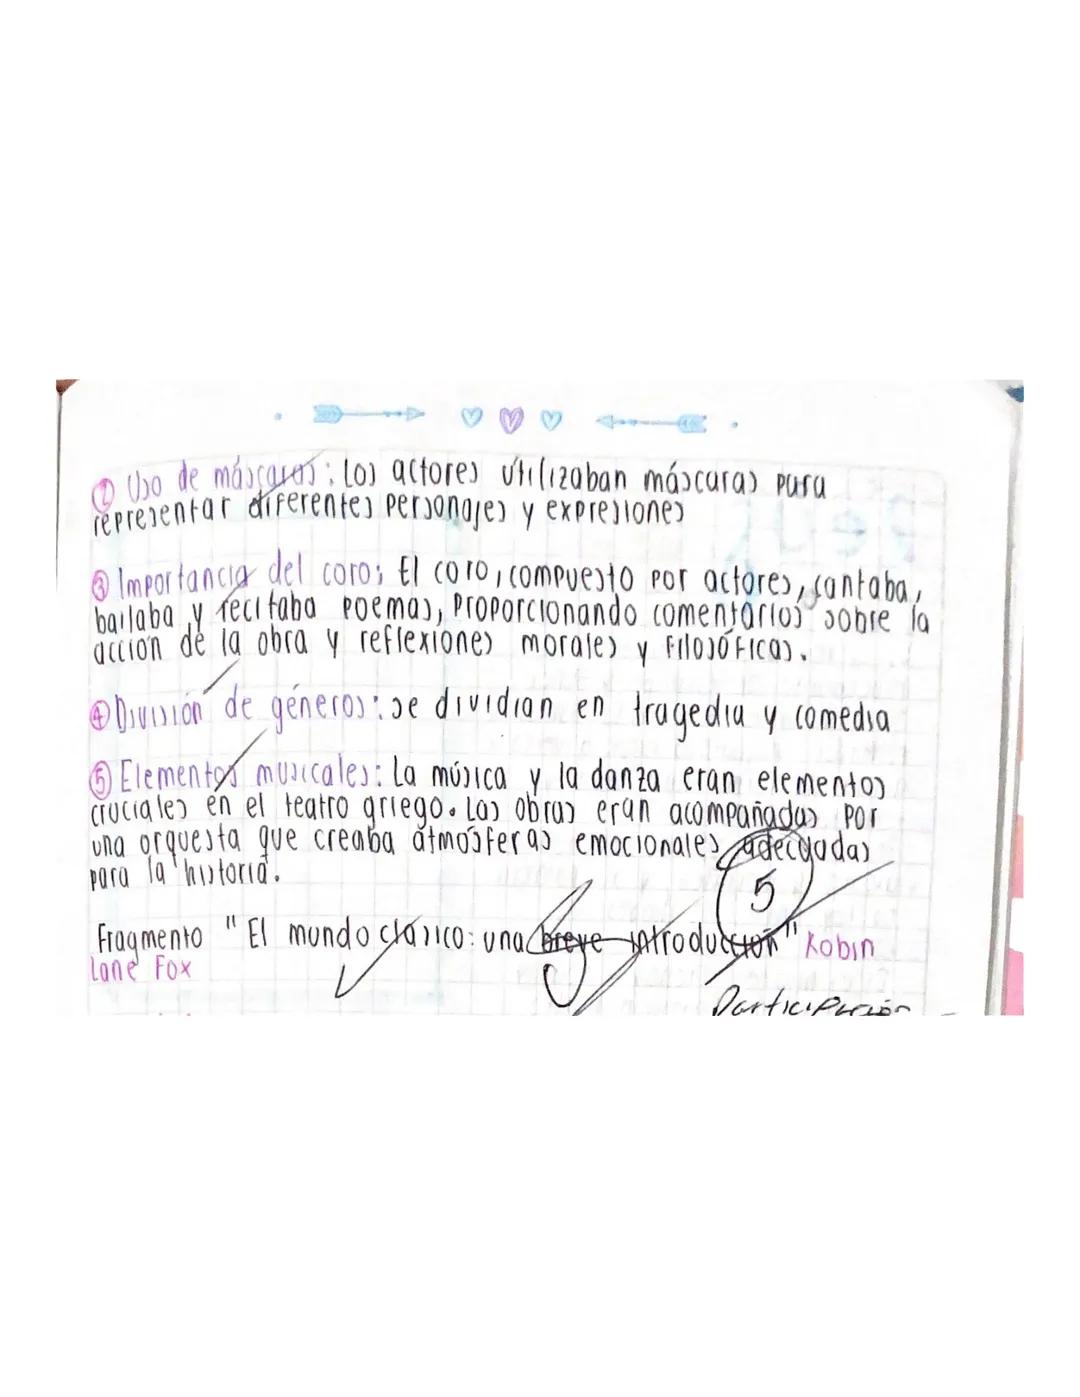 ② Uso de máscaras: Los actores utilizaban máscaras para
representar diferentes personajes y expresiones
③ Importancia del coro: El coro, compuesto por actores, cantaba,
bailaba y recitaba poemas, proporcionando comentarios sobre la
acción de la obra y reflexiones morales y filosóficas.
④ División de géneros: se dividian en tragedia y comedia
⑤ Elementos musicales: La música y la danza eran elementos
cruciales en el teatro griego. Las obras eran acompañadas por
una orquesta que creaba atmósferas emocionales adecuadas
para la historia.
5
Fragmento "El mundo clásico: una breve introducción" Robin
Lane Fox
Participación